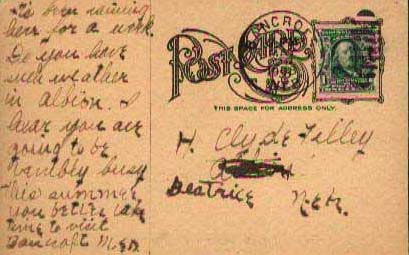 It's been raining
here for a week
Do you have
such weather
in Albion. I
hear you are
going to be
terribly busy
this summer
you better take
time to visit
Bancroft
POST CARD
BANCROFT
NEB.
THIS SPACE FOR ADDRESS ONLY.
H. Clyde Filley
Beatrice Neb.